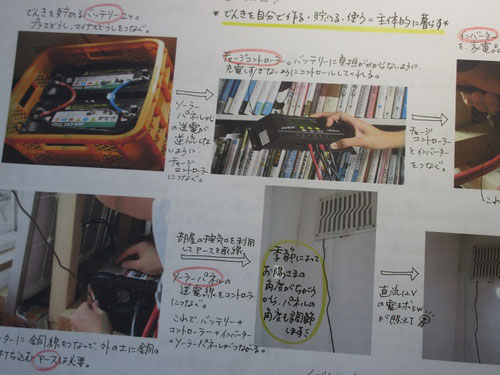 *でんきを自分で作る・貯める・使う=主体的に暮らす*
でんきを貯めるバッテリー
プラスどうし、マイナスどうしをつなぐ。
チャージコントローラー。バッテリーに負担がかからないように
充電しすぎないようにコントロールしてくれる。
インバーター
ソーラー
パネルから
の送電が
逆流しな
いように
チャージ
コントローラー
につなぐ。
チャージ
コントローラー
とインバーター
をつなぐ。
これ
部屋の換気口を利用
してアースを配線
ソーラーパネルの
送電線をコントローラー
につなぐ。
これでバッテリー+
コントローラー+インバーター
+ソーラーパネルがつながる。
季節によって
お陽さまの
角度がちがう
から、パネルの
角度も調節
します
直流12V
の電球5W
が照火丁
ターに銅線をつないで、外の土に銅の
打ち込むアースは大事。